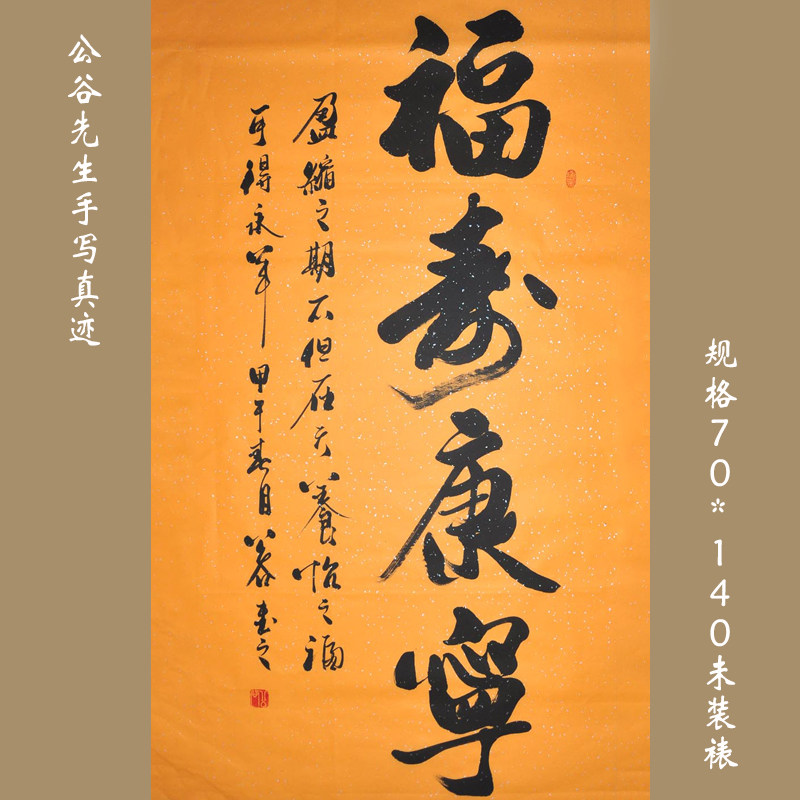 福寿康寧
盈縮之期不但在天養怡之福
可得永年 甲午春月 公谷书之
公谷先生手写真迹
规格70*140未装裱